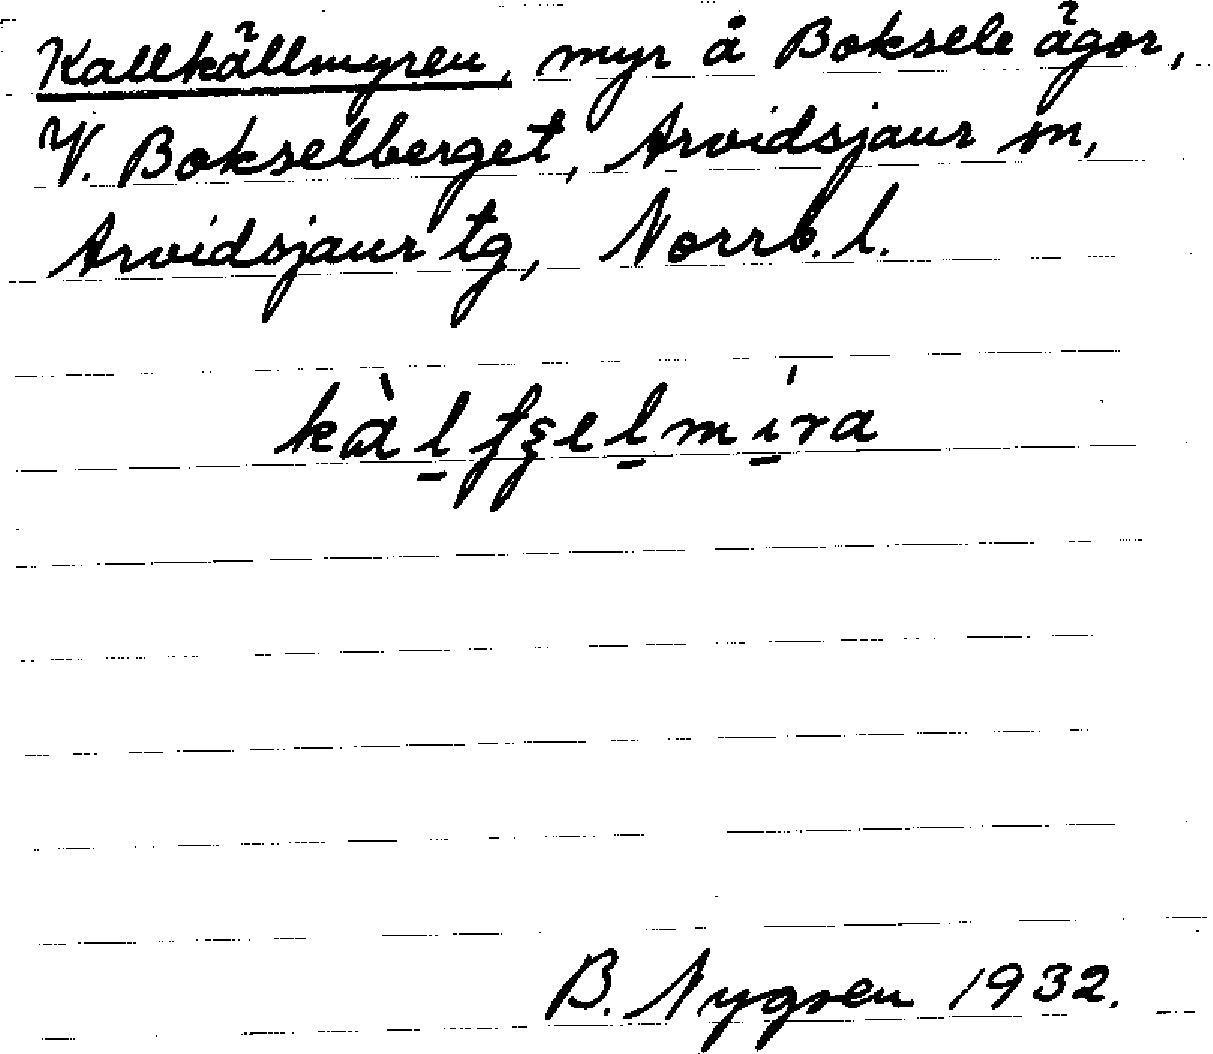 Kallkällmyren, myr å Boksele ägor,
V. Bokselberget, Arvidsjaur sn,
Arvidsjaur tg, Norrb. l.
kàl̠fʂel̠mı̠́ra
B. Nygren 1932.